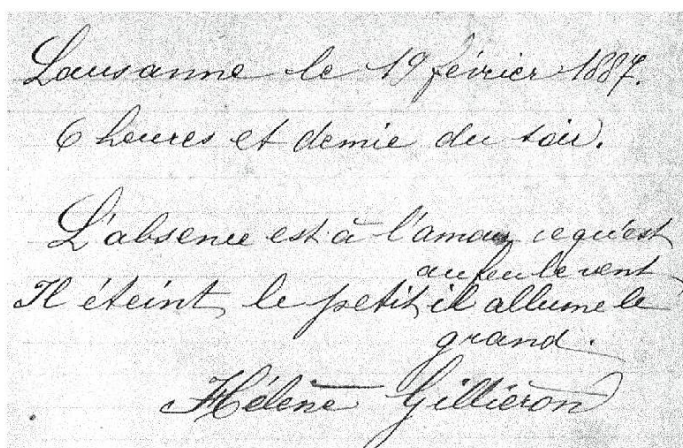 Lausanne le 19 février 1887.
6 heures et demie du soir.
L'absence est à l'amour ce qu'est
au feu le vent
Il éteint le petit il allume le
grand.
Hélène Gilliéron